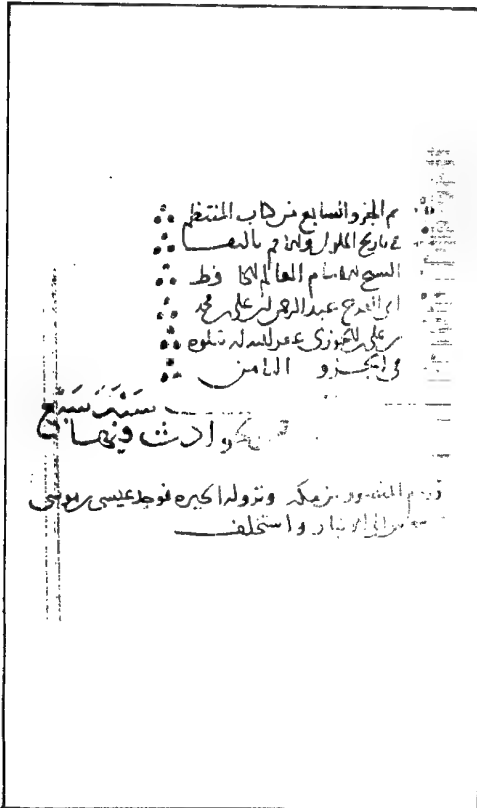 م الجزو السابع من كتاب المنتظم
في تاريخ الملوك والامم تاليف
الشيخ الامام العالم الحافظ
ابي الفرج عبد الرحمن بن علي بن محمد
بن علي الجوزي غفر الله له تتلوه
في الجزو الثامن
سنة سبع
وادث فيها
المنصور من مكة ونزوله الحيره فوجد عيسى بن موسى
الى الانبار واستخلف